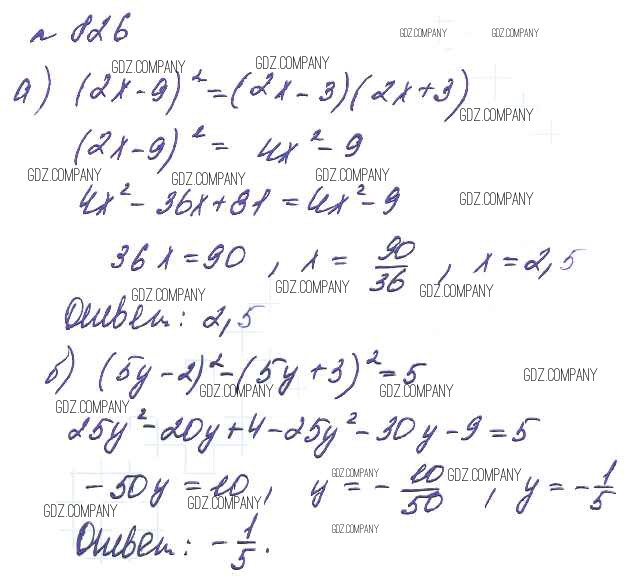 № 826
GDZ.COMPANY GDZ.COMPANY
GDZ.COMPANY GDZ.COMPANY
а) (2x-9)² = (2x-3)(2x+3)
GDZ.COMPANY
(2x-9)² = 4x²-9
GDZ.COMPANY GDZ.COMPANY GDZ.COMPANY
4x² - 36x + 81 = 4x² - 9
GDZ.COMPANY
36x = 90, x = 90/36, x = 2,5
GDZ.COMPANY GDZ.COMPANY GDZ.COMPANY
Ответ: 2,5
б) (5y-2)² - (5y+3)² = 5
GDZ.COMPANY
GDZ.COMPANY GDZ.COMPANY
GDZ.COMPANY
25y² - 20y + 4 - 25y² - 30y - 9 = 5
GDZ.COMPANY GDZ.COMPANY
-50y = 10, y = - 10/50, y = - 1/5
GDZ.COMPANY GDZ.COMPANY
Ответ: - 1/5.
GDZ.COMPANY